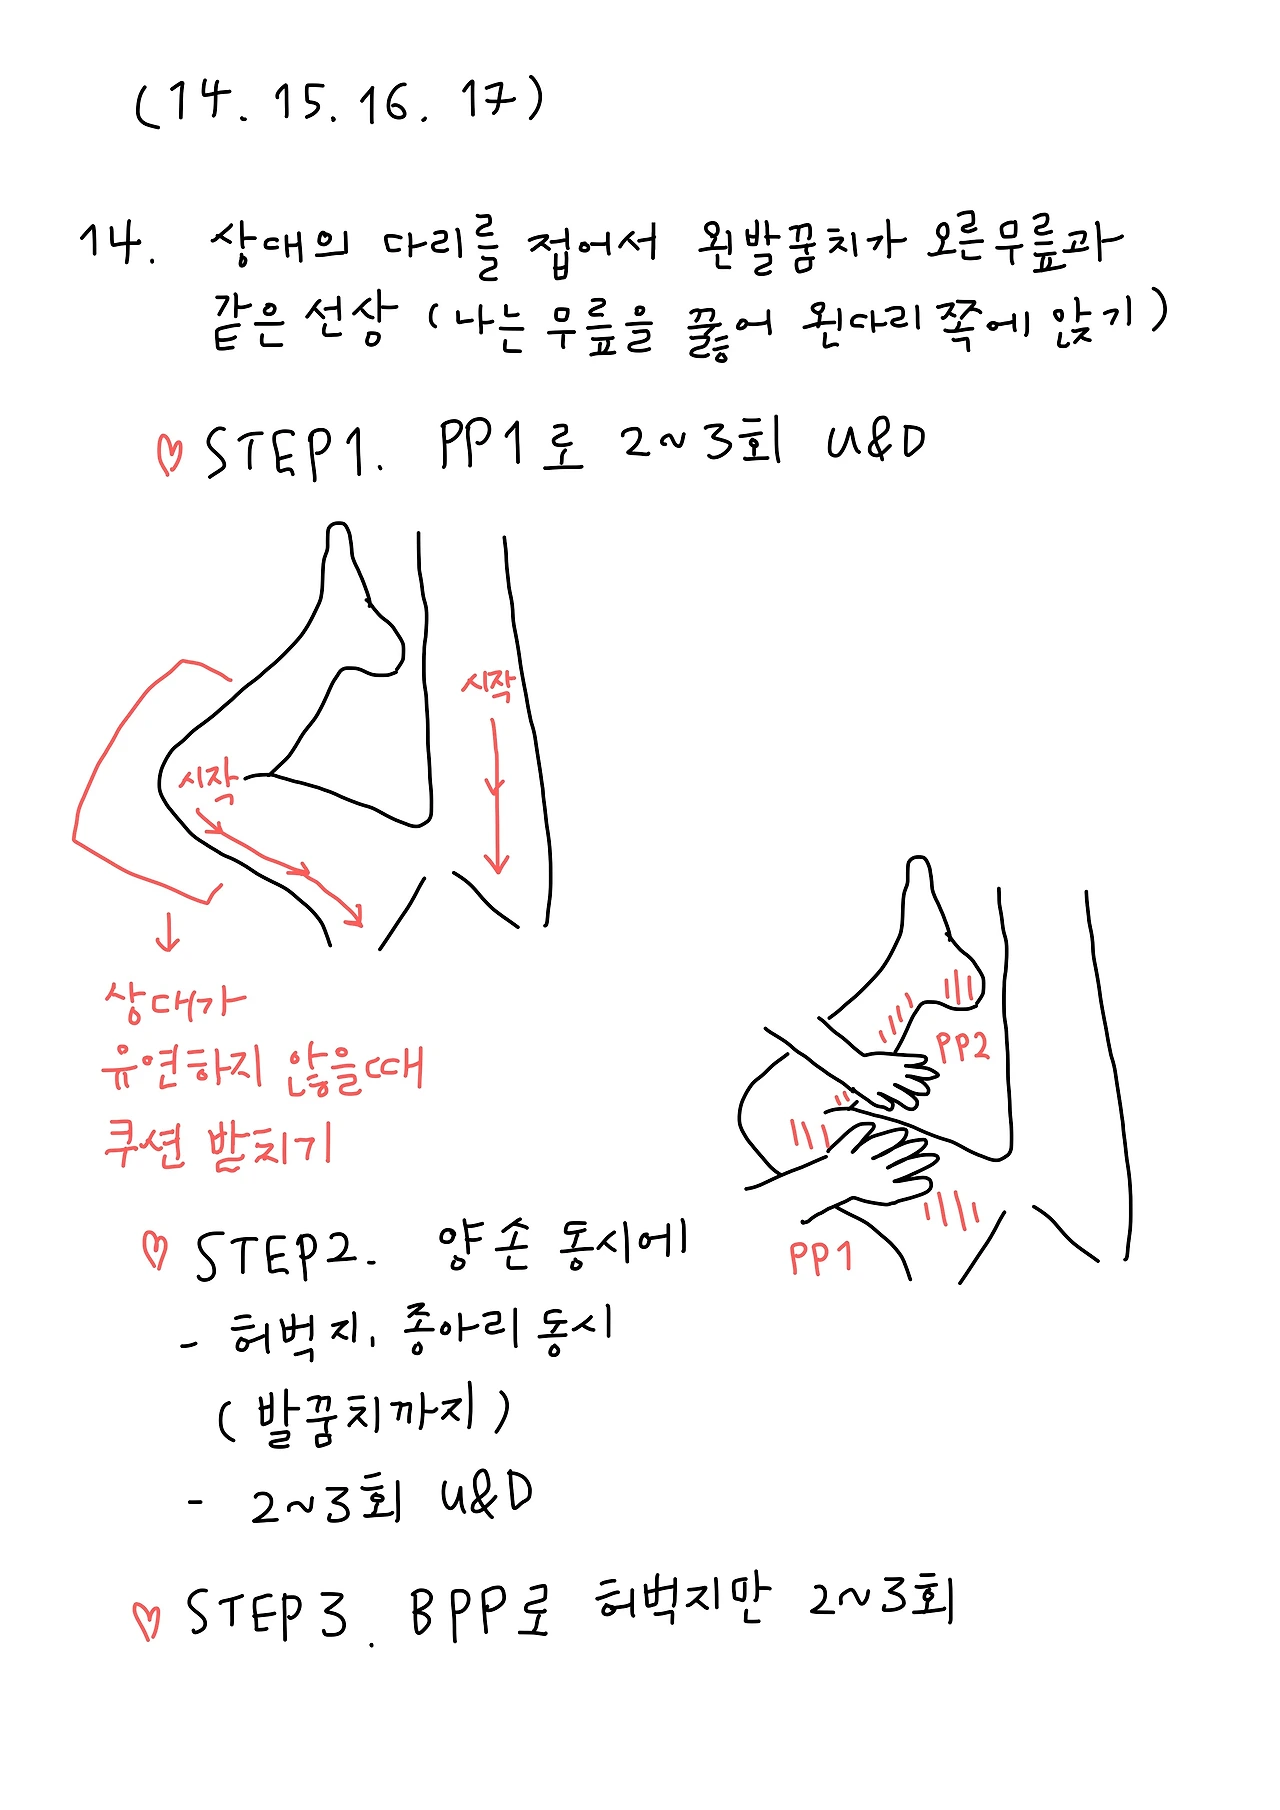 (14. 15. 16. 17)
14. 상대의 다리를 접어서 왼발꿈치가 오른무릎과
같은 선상 (나는 무릎을 꿇어 왼다리쪽에 앉기)
♡ STEP1. PP1로 2~3회 U&D
시작
시작
상대가
유연하지 않을때
쿠션 받치기
PP2
PP1
♡ STEP2. 양손 동시에
- 허벅지, 종아리 동시
(발꿈치까지)
- 2~3회 U&D
♡ STEP3. BPP로 허벅지만 2~3회